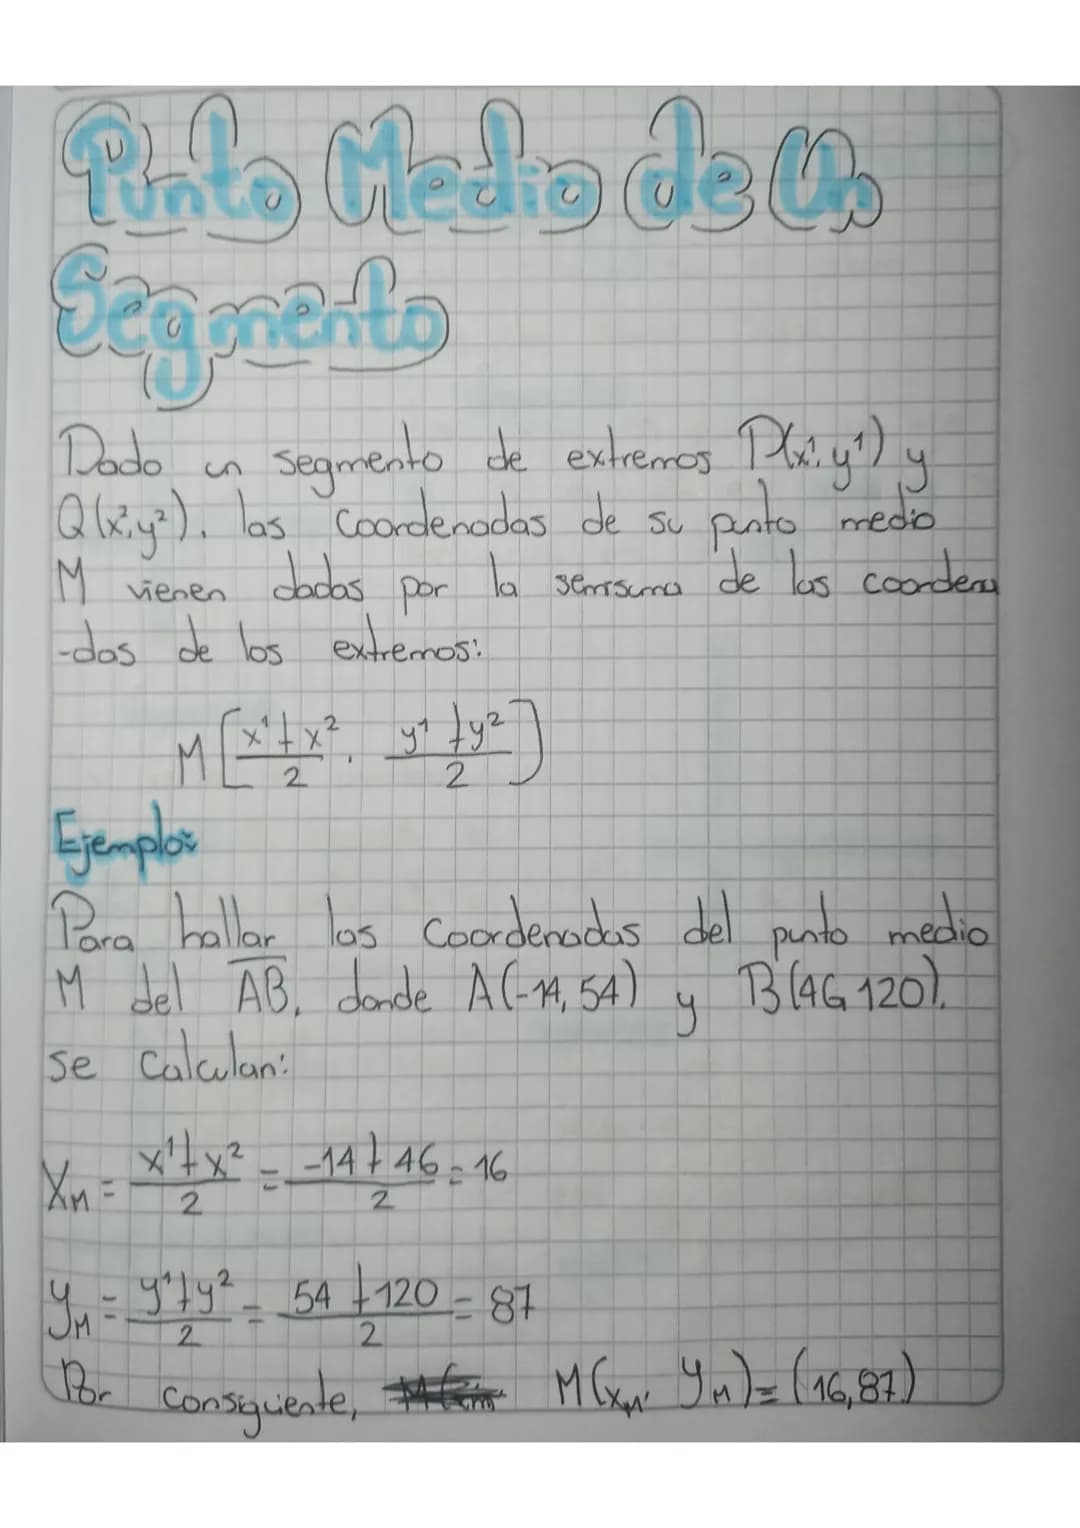 Punto Medio de Un
Segmento
Dado un segmento de extremos P(x¹, y¹) y
Q(x², y²), las Coordenadas de su punto medio
M vienen dadas por la semisuma de las coordena
-das de los extremos:
M[x¹+x²/2, y¹+y²/2]
Ejemplo:
Para hallar las Coordenadas del punto medio
M del A̅B̅, donde A(-14, 54) y B(46 120).
se Calculan:
Xₘ = x¹+x²/2 = -14+46/2 = 16
yₘ = y¹+y²/2 = 54+120/2 = 87
Por consiguiente, M(xₘ, yₘ)=(16,87)